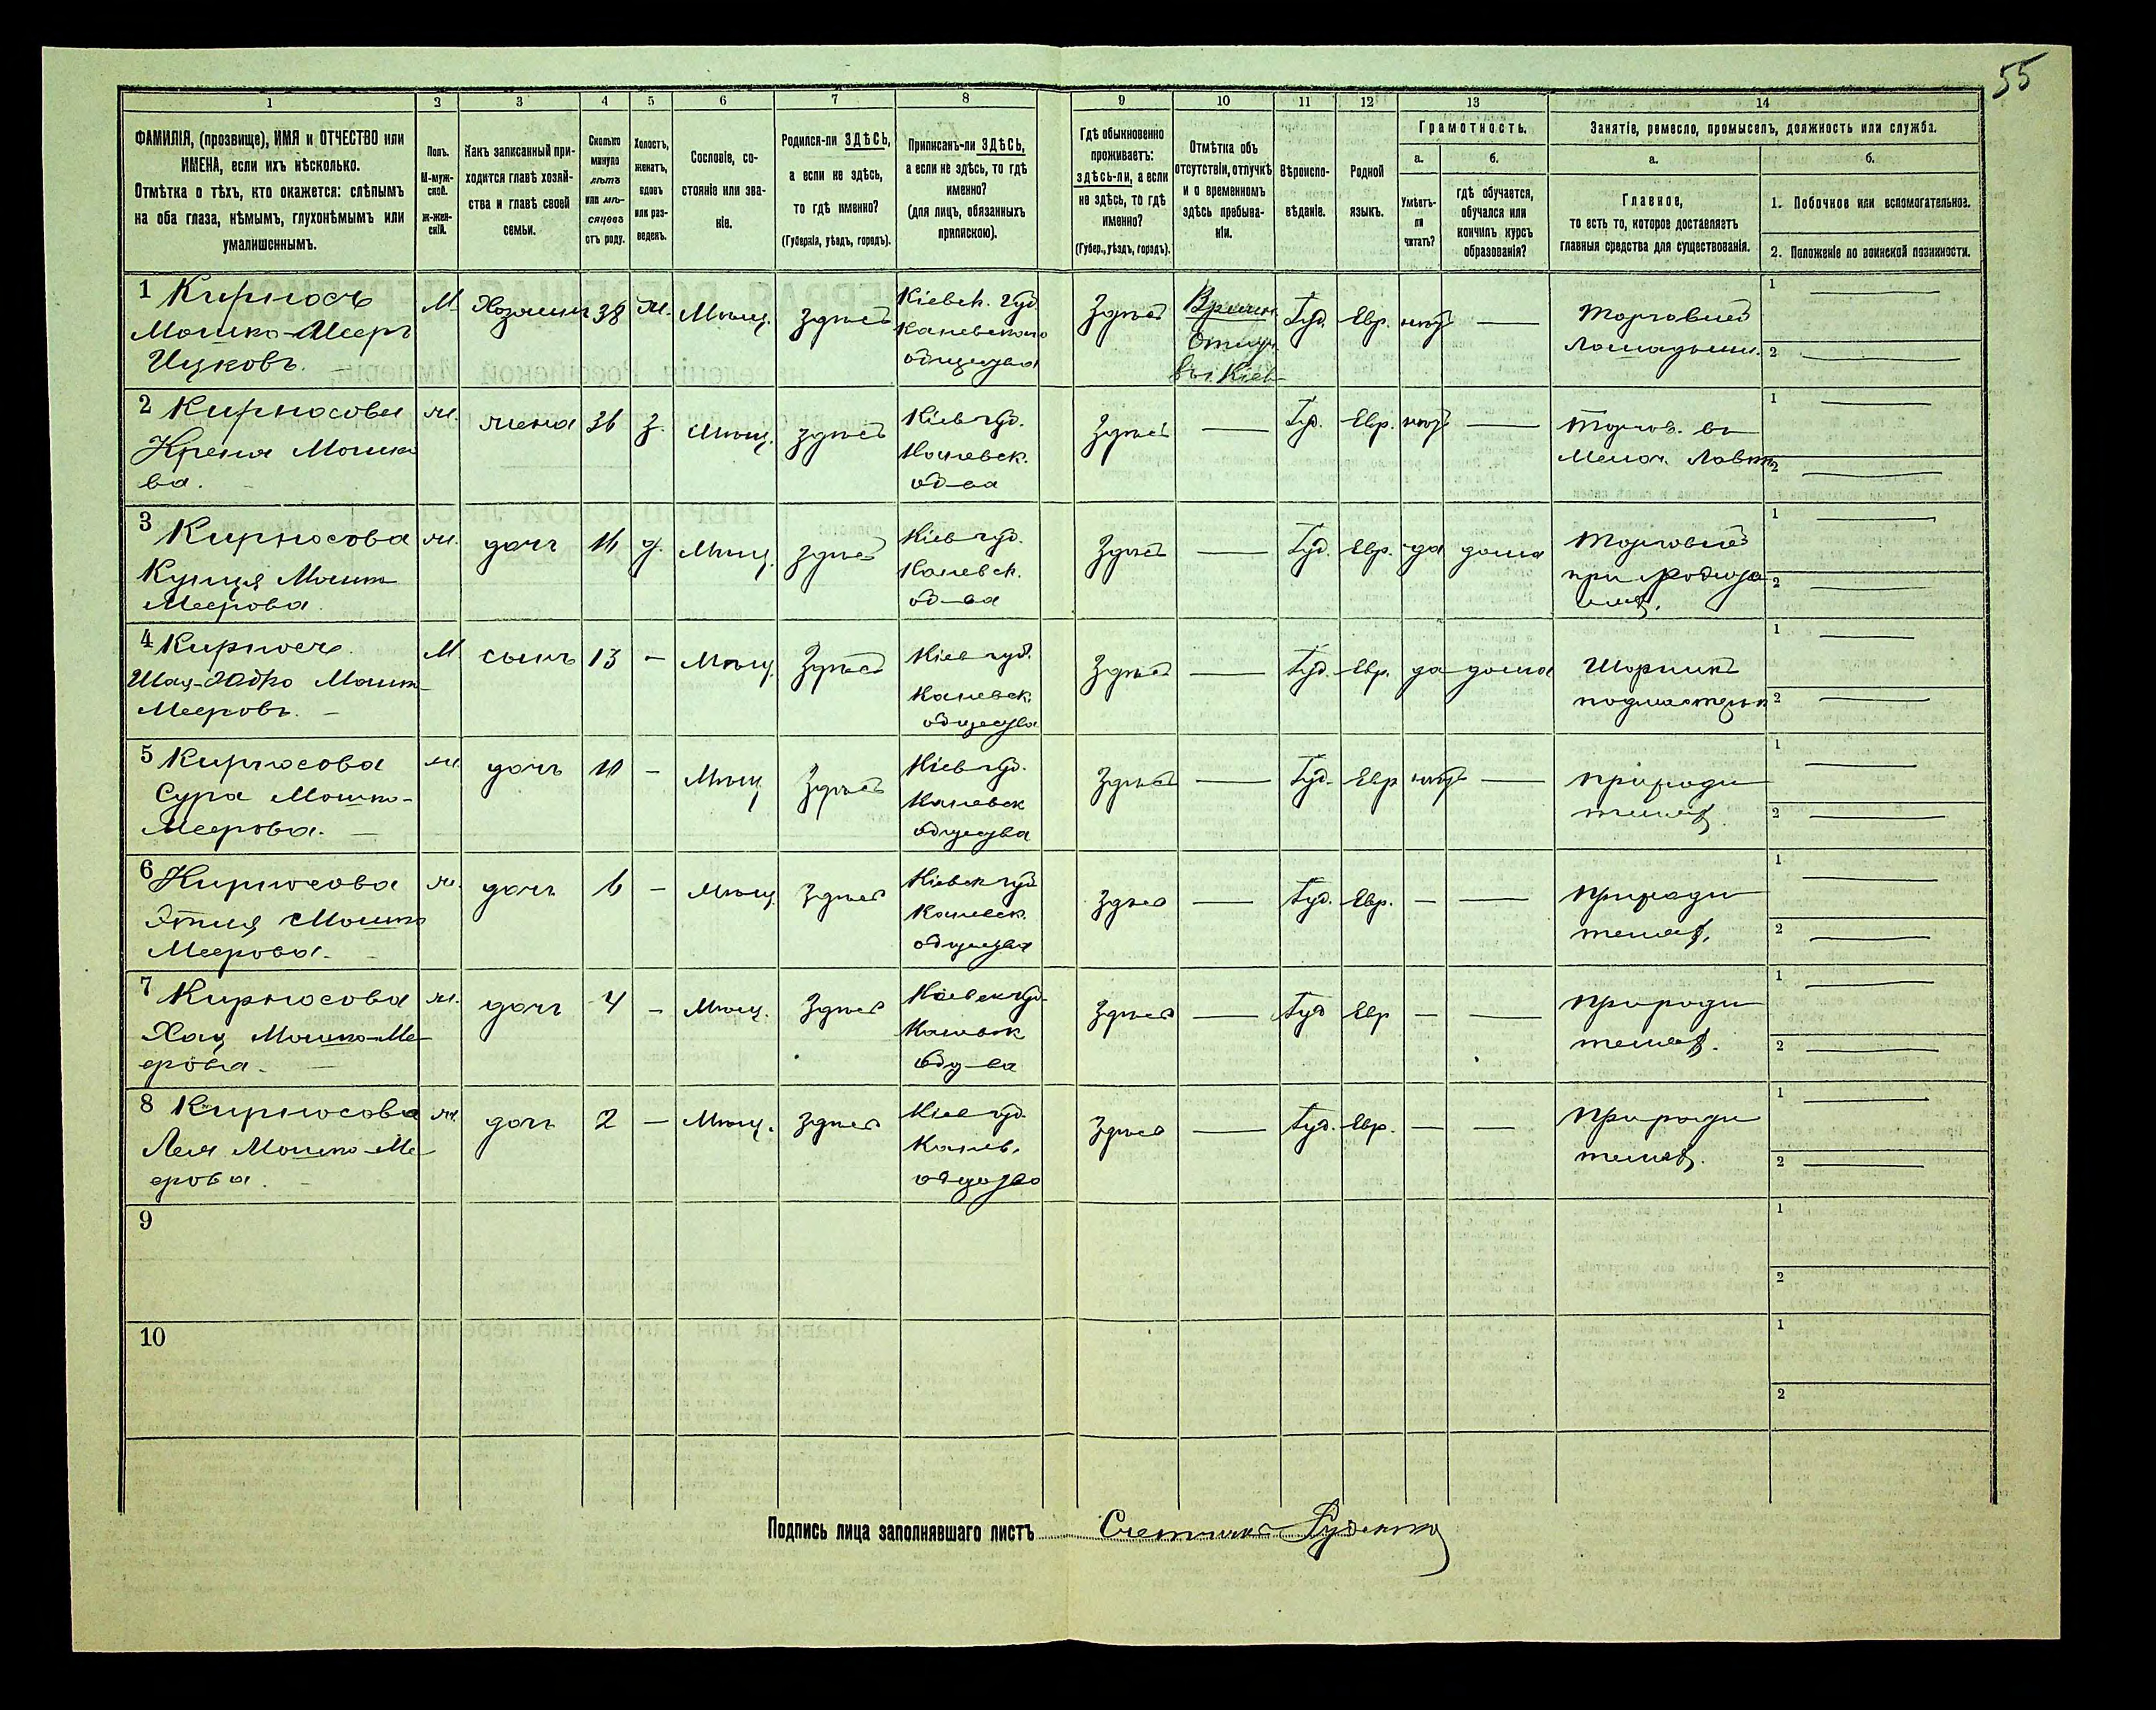 55
1 2 3 4 5 6 7 8 9 10 11 12 13 14
ФАМИЛІЯ, (прозвище), ИМЯ и ОТЧЕСТВО или
ИМЕНА, если ихъ нѣсколько.
Отмѣтка о тѣхъ, кто окажется: слѣпымъ
на оба глаза, нѣмымъ, глухонѣмымъ или
умалишеннымъ.
Полъ.
М-муж-
ской.
Ж-жен-
скій.
Какъ записанный при-
ходится главѣ хозяй-
ства и главѣ своей
семьи.
Сколько
минуло
лѣтъ
или мѣ-
сяцевъ
отъ роду.
Холостъ,
женатъ,
вдовъ
или раз-
веденъ.
Сословіе, со-
стояніе или зва-
ніе.
Родился-ли ЗДѢСЬ,
а если не здѣсь,
то гдѣ именно?
(Губернія, уѣздъ, городъ).
Приписанъ-ли ЗДѢСЬ,
а если не здѣсь, то гдѣ
именно?
(для лицъ, обязанныхъ
припискою).
Гдѣ обыкновенно
проживаетъ:
здѣсь-ли, а если
не здѣсь, то гдѣ
именно?
(Губер., уѣздъ, городъ).
Отмѣтка объ
отсутствіи, отлучкѣ
и о временномъ
здѣсь пребыва-
ніи.
Вѣроиспо-
вѣданіе.
Родной
языкъ.
Грамотность.
а.
Умѣетъ-
ли
читать?
б.
гдѣ обучается,
обучался или
кончилъ курсъ
образованія?
Занятіе, ремесло, промыселъ, должность или служба.
а.
Главное,
то есть то, которое доставляетъ
главныя средства для существованія.
б.
1. Побочное или вспомогательное.
2. Положеніе по воинской повинности.
1 Кирносъ
Мошко-Мееръ
Ицковъ.
М. Хозяинъ 38 ж. Мѣщ. здѣсь
Кіевск. губ.
Каневскаго
общества
Здѣсь
Времен.
Отлуч.
въ г. Кіевъ
Іуд. Евр. нѣтъ —
Торговецъ
Лошадьми.
1
2
2 Кирносова
Крейня Мошко
ва.
ж. жена 36 з. Мѣщ. здѣсь
Кіев губ.
Каневск.
об-ва
Здѣсь — Іуд. Евр. нѣтъ —
Торгов. въ
Мелоч. Лавкѣ
1
2
3 Кирносова
Мошко
Меерова.
ж. дочь 16 д. Мѣщ. здѣсь
Кіев губ.
Каневск.
об-ва
Здѣсь — Іуд. Евр. да дома
при родите
1
2
4 Кирносъ
Мошко
Мееровъ. —
М сынъ 13 — Мѣщ. Здѣсь
Кіев губ.
Каневск.
общества
Здѣсь — Іуд. Евр. да дома
Шорникъ
подмастерье
1
2
5 Кирносова
Сура Мошко-
Меерова. —
ж. дочь 10 — Мѣщ Здѣсь
Кіев губ.
Каневск
общества
Здѣсь — Іуд. Евр нѣтъ —
при роди
теляхъ
1
2
6 Кирносова
Этля Мошко
Меерова. —
ж. дочь 6 — Мѣщ. Здѣсь
Кіевск губ
Каневск.
общества
Здѣсь — Іуд. Евр. — —
при роди
теляхъ.
1
2
7 Кирносова
Хая Мошко-Ме
ерова. —
ж. дочь 4 — Мѣщ. Здѣсь
Кіевск губ.
Каневск
общ-ва
Здѣсь — Іуд Евр — —
при роди
теляхъ.
1
2
8 Кирносова
Лея Мошко-Ме
ерова.
ж. дочь 2 — Мѣщ. здѣсь
Кіев губ.
Канев.
общества
Здѣсь — Іуд. Евр. — —
При роди
теляхъ.
1
2
9
1
2
10
1
2
Подпись лица заполнявшаго листъ Счетчикъ Руденко